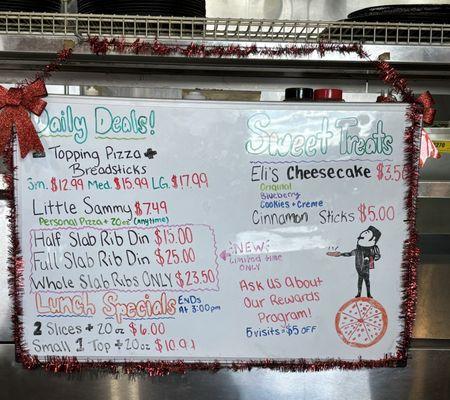 Daily Deals!
2 Topping Pizza +
Breadsticks
Sm. $12.99 Med. $15.99 LG. $17.99
Little Sammy $7.99
Personal Pizza + 20oz (Anytime)
Half Slab Rib Din $15.00
Full Slab Rib Din $25.00
Whole Slab Ribs ONLY $23.50
NEW
Limited time
ONLY
Lunch Specials ENDS
At 3:00pm
2 Slices + 20oz $6.00
Small 1 Top + 20oz
Sweet Treats
Eli's Cheesecake
Original
Blueberry
Cookies + Creme
Cinnamon Sticks $5.00
Ask Us About
Our Rewards
Program!
5 visits = $5 OFF